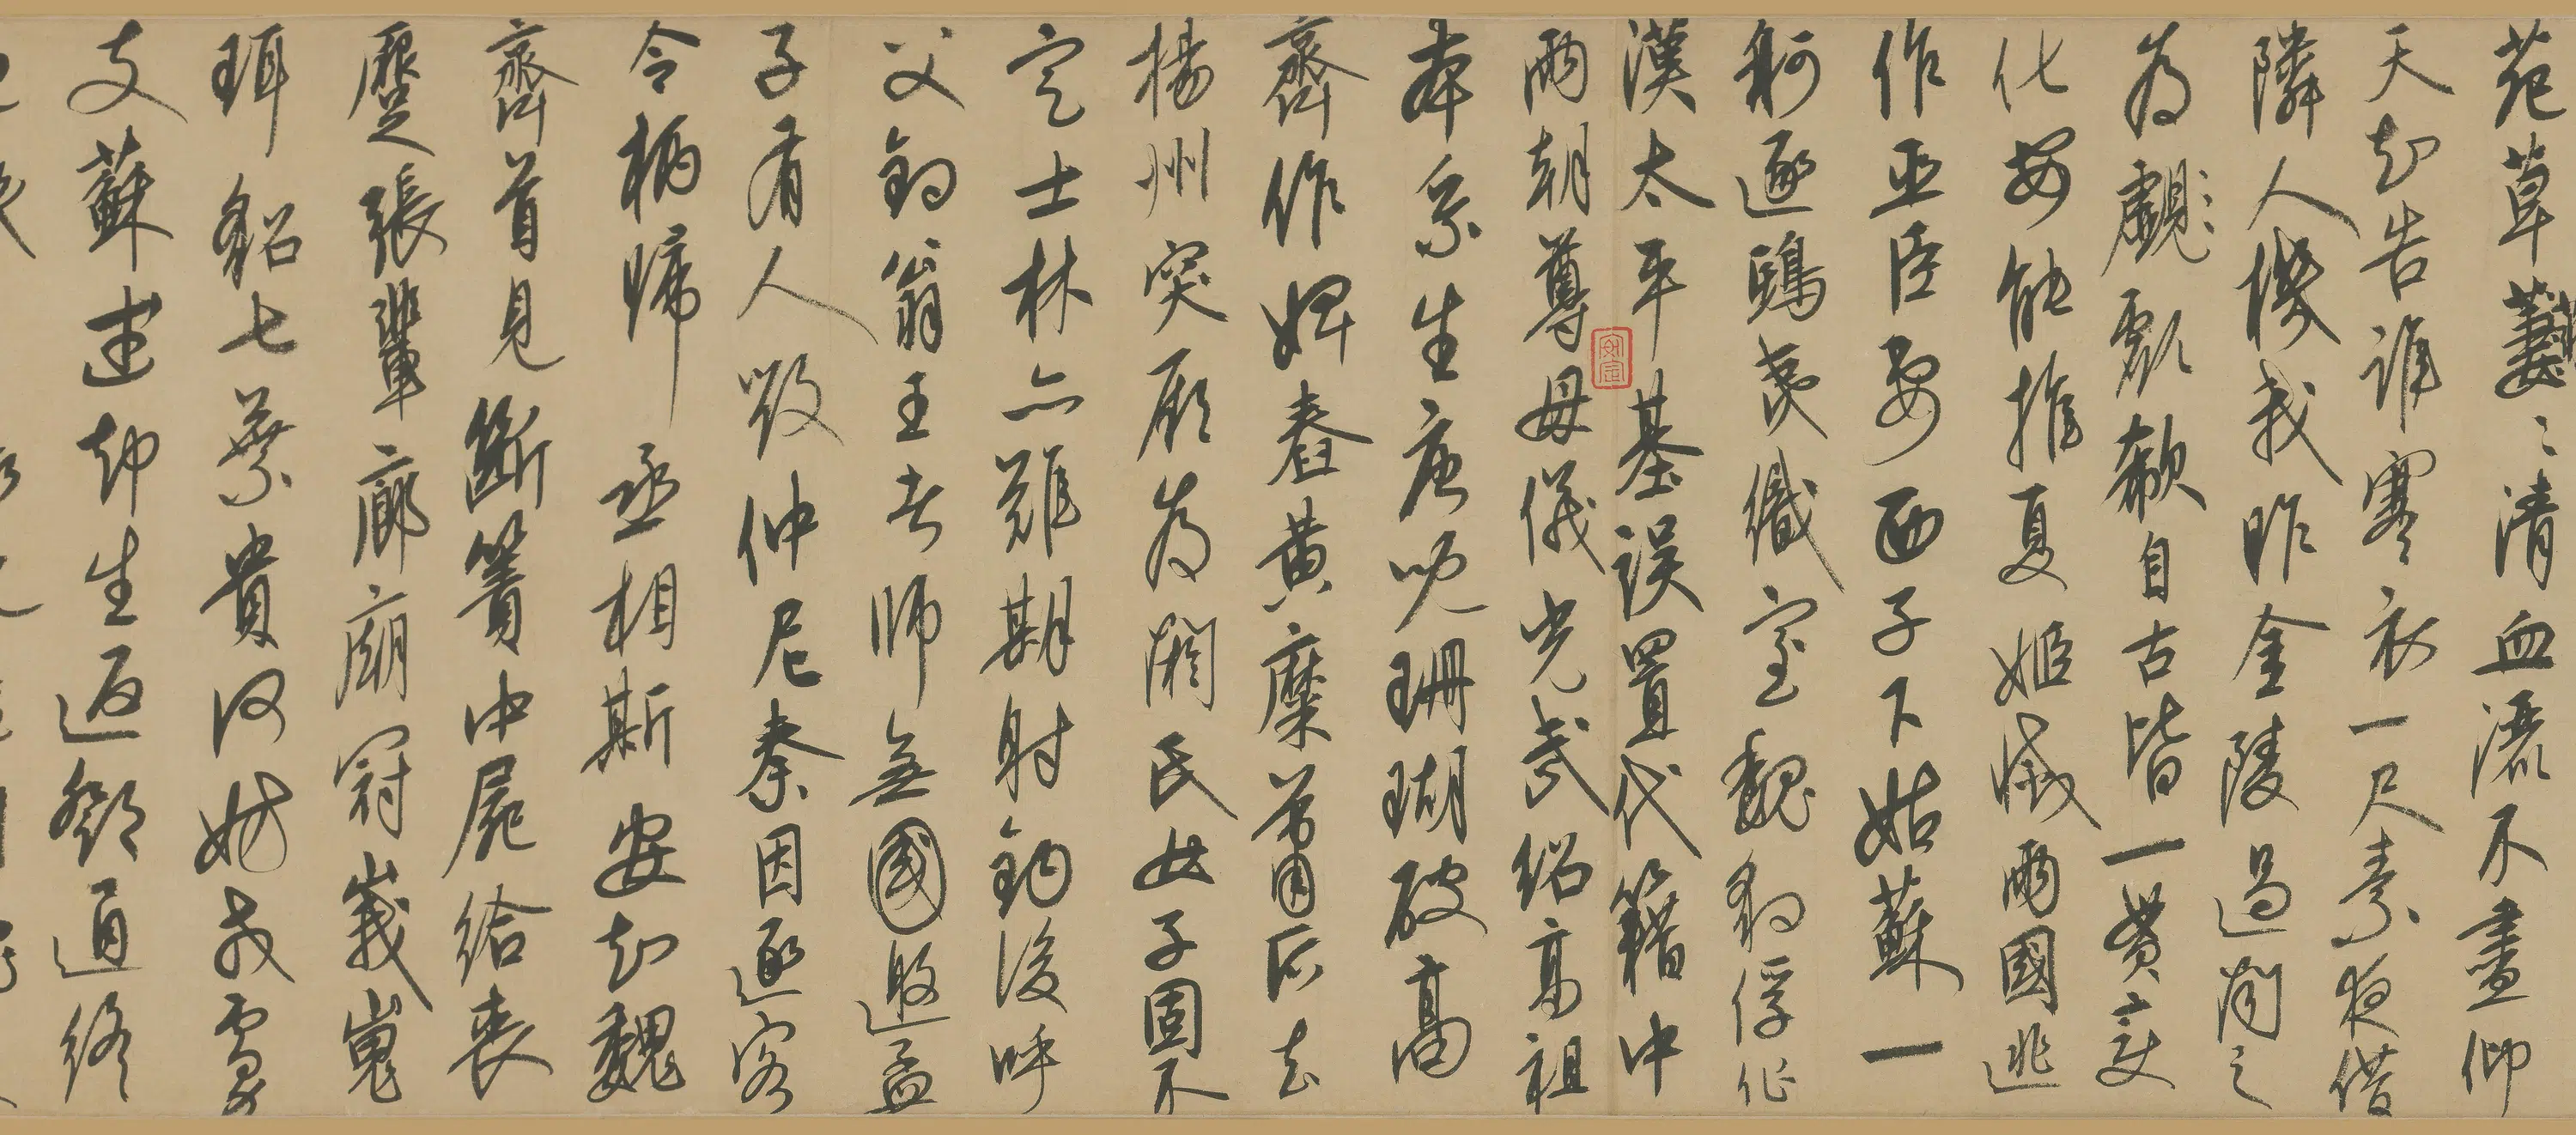 苑草萋〻清血灑不盡仰
天知告誰寒衣一尺素夜借
隣人機我昨金陵過聞之
為覷歔欷自古皆一貫變
化安能推夏姬滅兩國逃
作巫臣妻西子下姑蘇一
舸逐鴟夷織室魏豹俘作
漢太平基誤置代籍中
兩朝尊母儀光武紹高祖
本系生唐兒珊瑚破高
齊作婢舂黃糜蕭后去
楊州突厥為閼氏女子固不
定士林亦難期射鉤後呼
父釣翁王者師無國邀孟
子有人毀仲尼秦因逐客
令柄歸丞相斯安知魏
齊首見斷簀中屍給喪
蹷張輩廊廟冠峩嵬
珥貂七葉貴何妨戎虜
支蘇建却生返鄧通終